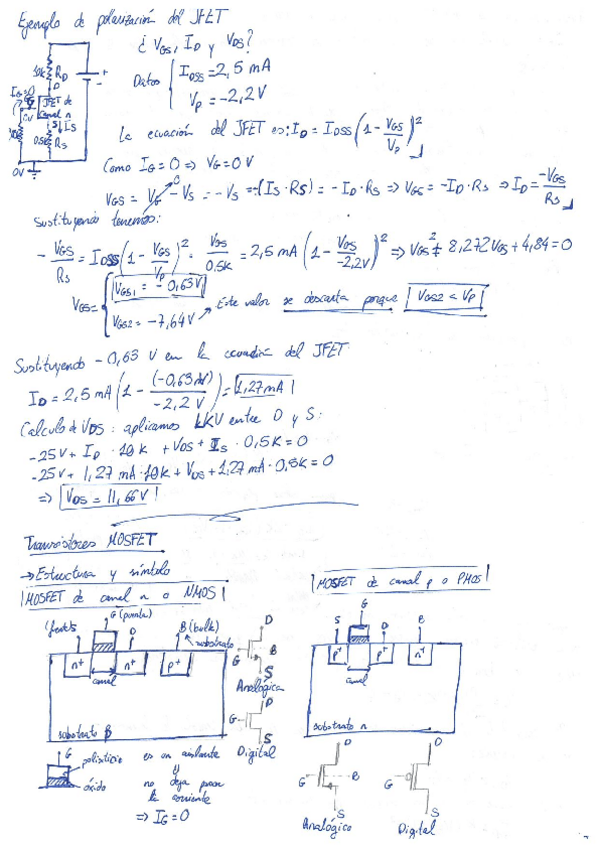 Ejemplo de polarización del JFET
¿ VGS, ID y VDS?
Datos { IDSS = 2,5 mA
Vp = -2,2V
10k RD
D
IG=0
G
0V
JFET de
canal n
S ↓ IS
0.5k RS
0V
La ecuación del JFET es: ID = IDSS (1 - VGS/Vp)²
Como IG = 0 ⇒ VG = 0 V
VGS = VG - VS = -VS = -(IS · RS) = -ID · RS ⇒ VGS = -ID · RS ⇒ ID = -VGS/RS
Sustituyendo tenemos:
- VGS/RS = IDSS (1 - VGS/Vp)² - VGS/0.5K = 2,5 mA (1 - VGS/-2,2V)² ⇒ VGS² + 8,272 VGS + 4,84 = 0
VGS = { VGS1 = -0,63V
VGS2 = -7,64V → Este valor se descarta porque VGS2 < Vp
Sustituyendo -0,63 V en la ecuación del JFET
ID = 2,5 mA (1 - (-0,63V)/-2,2 V) = 1,27 mA
Calculo de VDS: aplicamos KKV entre D y S:
-25V + ID · 10k + VDS + IS · 0,5K = 0
-25V + 1,27 mA · 10k + VDS + 1,27 mA · 0,5K = 0
⇒ VDS = 11,66V
Transistores MOSFET
→ Estructura y símbolo
MOSFET de canal n o NMOS
MOSFET de canal p o PMOS
G (puerta)
D
B (bulk)
substrato
n+ n+ p+
canal
substrato p
D
G B
S
Analógica
D
G
S
Digital
S G D B
p+ p+ n+
canal
substrato n
G
polisilicio
óxido
es un aislante
y
no deja pasar
la corriente
⇒ IG = 0
D
G B
S
Analógico
D
G
S
Digital